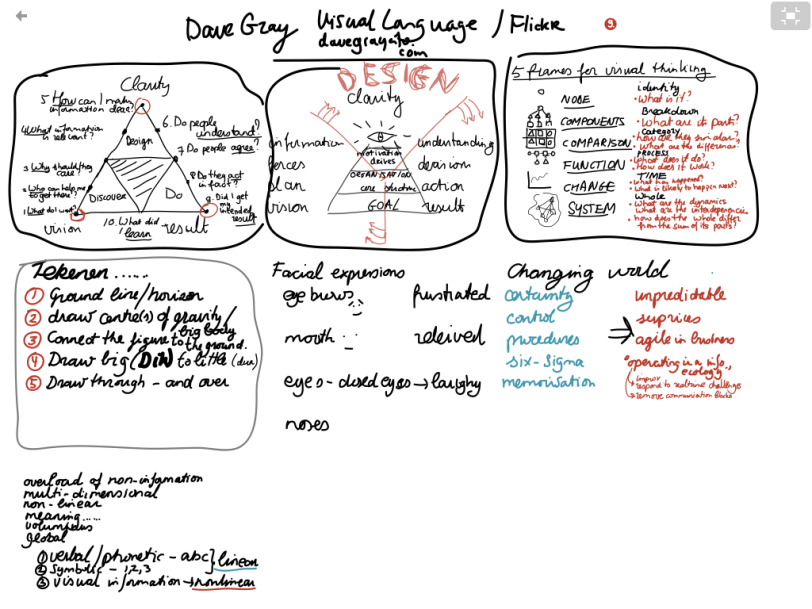 Dave Gray Visual Language / Flickr
davegrayinfo.com
Clarity
5 How can I make information clear?
4 What information is relevant?
3 Why should they care?
2 Who can help me to get there?
1 What do I want?
6. Do people understand?
7 Do people agree?
8 Do they act in fact?
9. Did I get my intended result
10. What did I learn
Design
Discover
Do
vision
result
DESIGN
clarity
information
forces
plan
vision
motivation
drives
ORGANISATION
core
GOAL
understanding
decision
action
result
5 frames for visual thinking
NODE
identity
• What is it?
COMPONENTS
Breakdown
• What are it parts?
COMPARISON
Category
• how are they similar?
• What are the differences
FUNCTION
PROCESS
• What does it do?
• How does it work?
CHANGE
TIME
• What has happened?
• What is likely to happen next?
SYSTEM
Whole
• What are the dynamics
What are the interdependencies
• how does the whole differ from the sum of its parts?
Tekenen ......
1 Ground line/horizon
2 draw centre(s) of gravity/big body
3 Connect the figure to the ground.
4 Draw big (DiW) to little (diw)
5 Draw through - and over
Facial expressions
eye burws
mouth
eyes - closed eyes → laughy
noses
frustrated
releived
Changing world
certainty
control
procedures
six-sigma
memorisation
unpredictable
suprices
agile in business
• operating in a info. ecology
improv
respond to realtime challenges
remove communication blocks
overload of non-information
multi-dimensional
non-linear
meaning.....
volumptous
global
1 verbal/phonetic - abc } linear
2 symbolic - 1,2,3
3 visual information → nonlinear